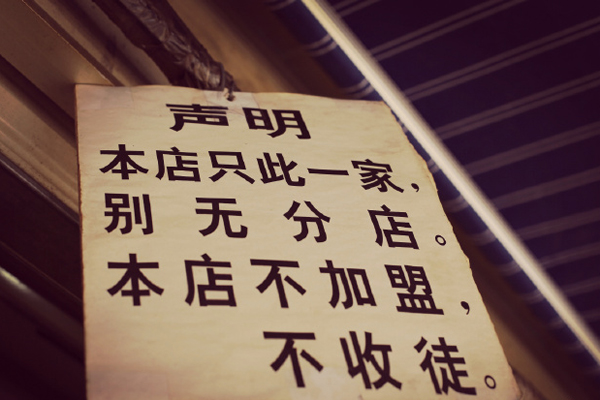 声明
本店只此一家,
别无分店。
本店不加盟,
不收徒。